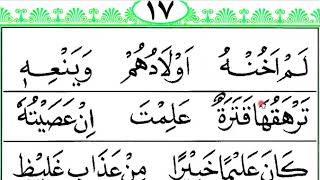 ١٧
لَمْ اَخُنْهُ اَوْلَادُهُمْ وَيَنْعِهٖ
تَرْهَقُهَا قَتَرَةٌ عَلِمْتَ اِنْ عَصَيْتُهٗ
كَانَ عَلِيْمًا خَبِيْرًا مِنْ عَذَابٍ غَلِيْظٍ